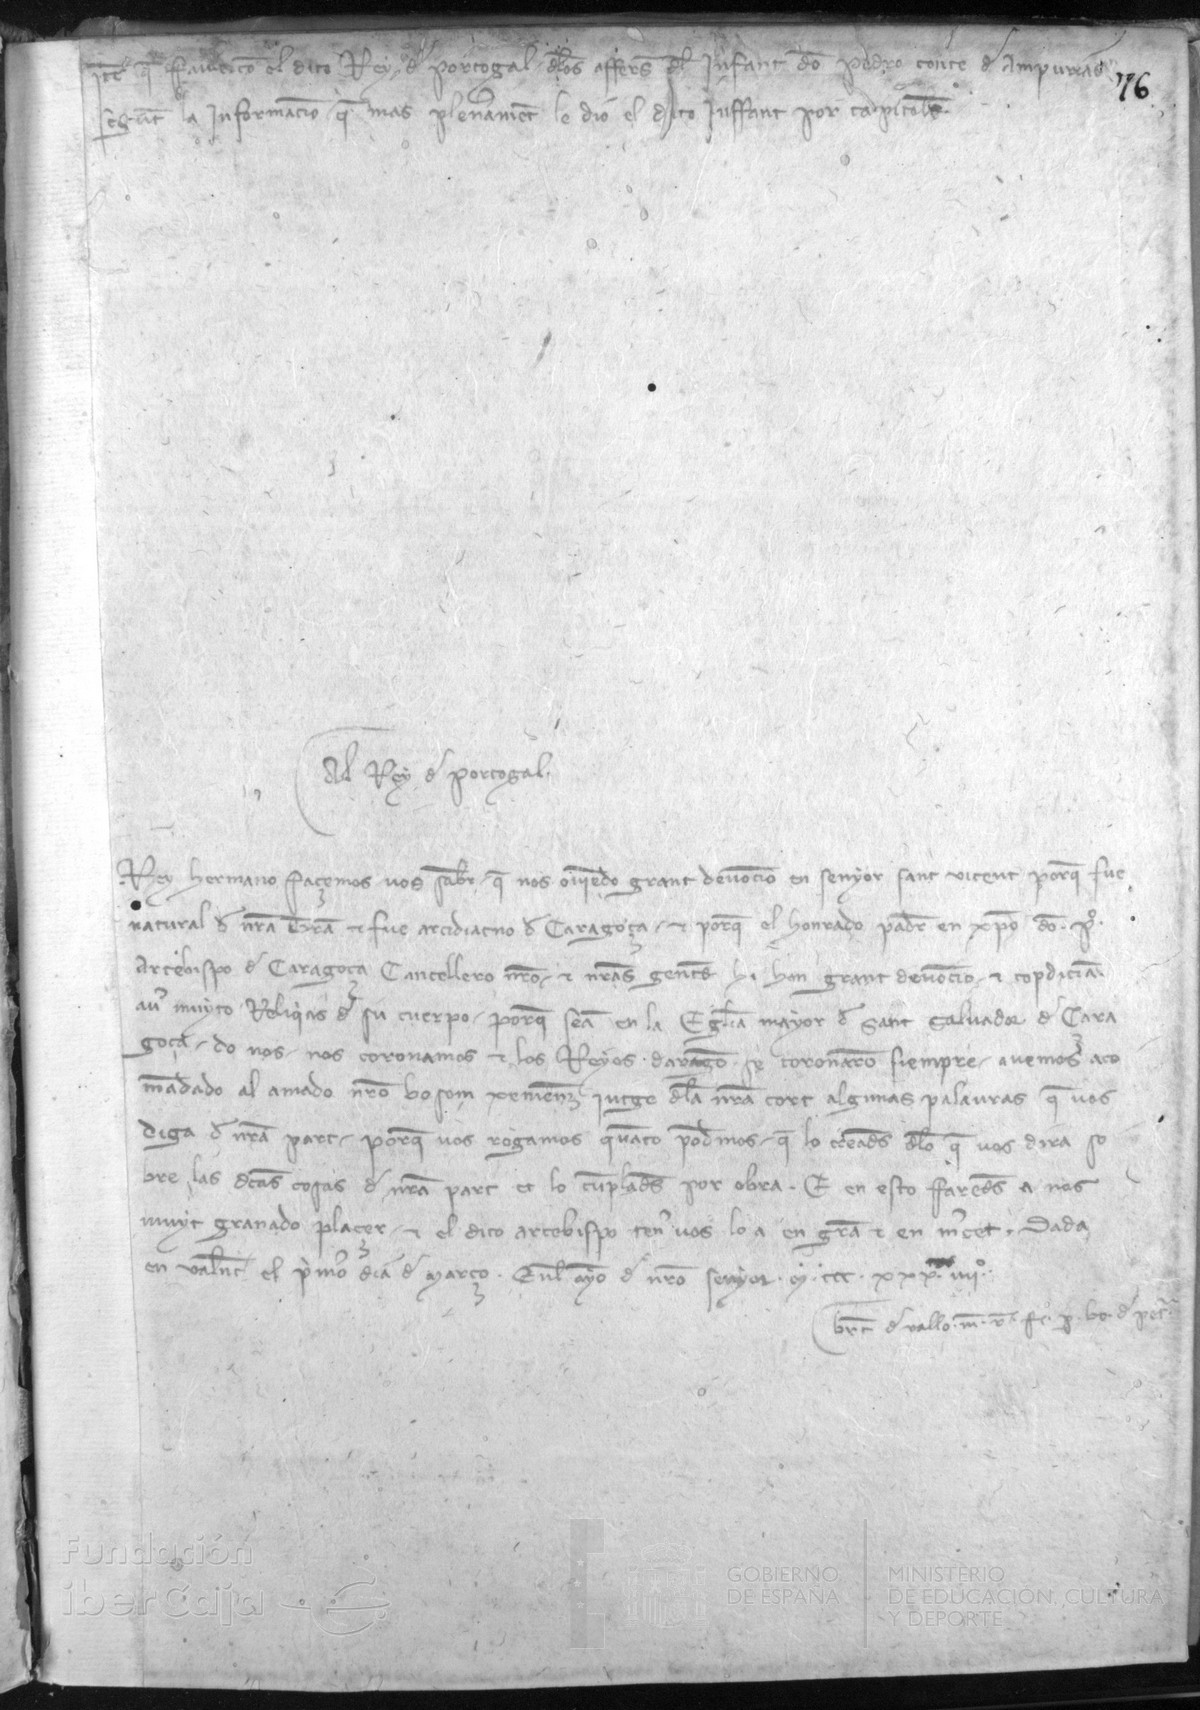 Itē q̄ fauletō el dito Rey đ Portogal đlos affers̄ đl Jnfant dō Pedro conte đ Ampurias
segūt la Informaciō q̄ mas plenamēt le dio el dito Inffant por capitōls.
76
Al Rey đ Portogal.
Rey hermano façemos uos sab̄r q̄ nos ouiēdo grant deuociō en senyor sant vicent porq̄ fue
natural đ nr̄a tr̄ra et fue arcidiacno đ Caragoça et porq̄ el honrado padr̄ en xp̄o dō P̊.
Arcebispo đ Caragoça Cancellero nr̄o et nr̄as gent̄s hi han grant deuociō et copdiciā
au̓ muyto Reliq̄as đ su cuerpo porq̄ seā en la Egl̄ia mayor đ Sant Saluador đ Cara
goça do nos nos coronamos et los Reyes daragō se coronarō siempre auemos aco
mādado al amado nr̄o bosom xemēnz jutge đla nr̄a cort algunas palauras q̄ uos
diga đ nr̄a part porq̄ uos rogamos quāto pod̄mos q̄ lo cread̄s đlo q̄ uos dira so
bre las dc̄as cosas đ nr̄a part et lo cūplad̄s por obra. E en esto ffared̄s a nos
muyt granado plaçer et el dito arcebispo ten̓ uos lo a en grā et en m̓cet. Dada
en val̄nc̄ el p̓mo̓ dia đ março. Enl̄ ayo đ nr̄o senyor. M. ccc. xxx. iiii°.